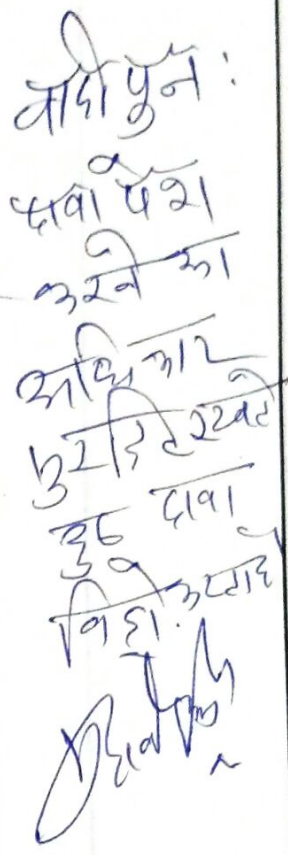 वादी पुन:
दावा पेश
करने का
अधिकार
सुरक्षित रखते
हुए दावा
विड्रो करता है